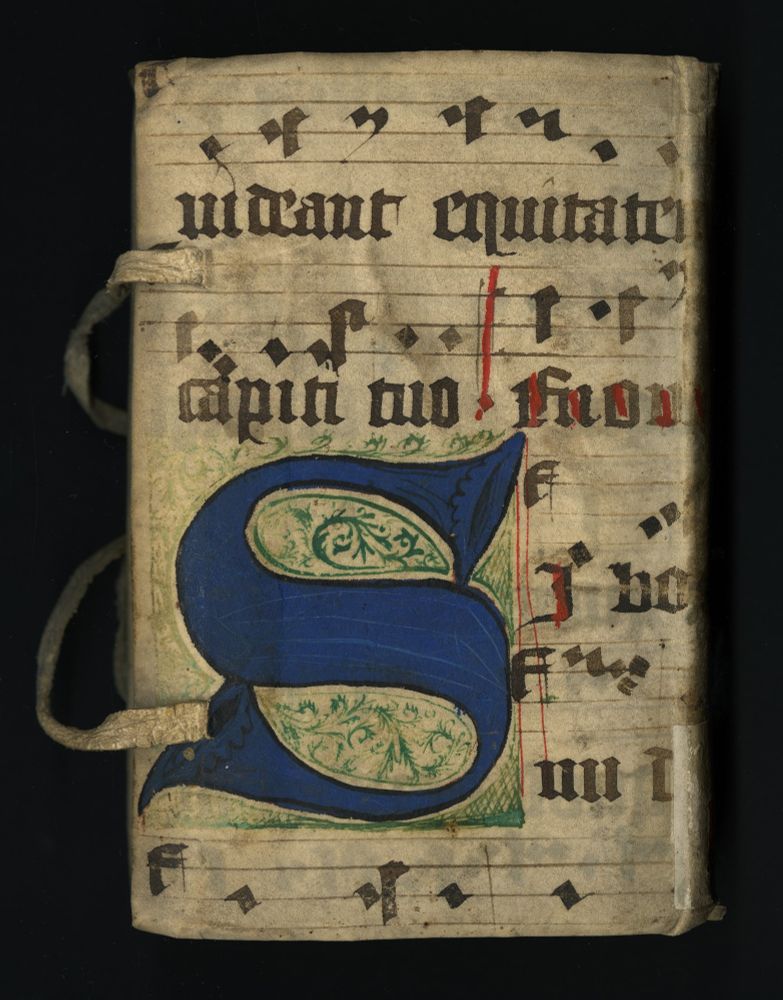 uideant equitate
capiti tuo Euou
SI bo
nu d